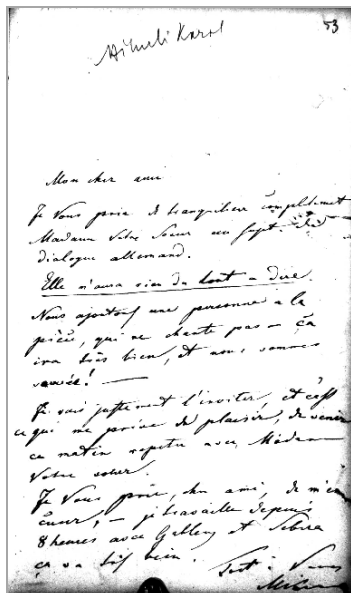 Mikuli Karol
53
Mon cher ami
Je vous prie de tranquiliser complètement
Madame votre Soeur au sujet du
dialogue allemand.
Elle n'aura rien du tout à dire.
Nous ajoutons une personne à la
pièce, qui ne chante pas – Ça
ira très bien, et nous sommes
sauvés! —
Je vais justement l'inviter, et c'est
ce qui me prive du plaisir, de venir
ce matin repeter avec Madame
votre soeur.
Je Vous prie, cher ami, de m'en
– je travaille depuis
8 heures avec et
ça va très bien. Tout à Vous